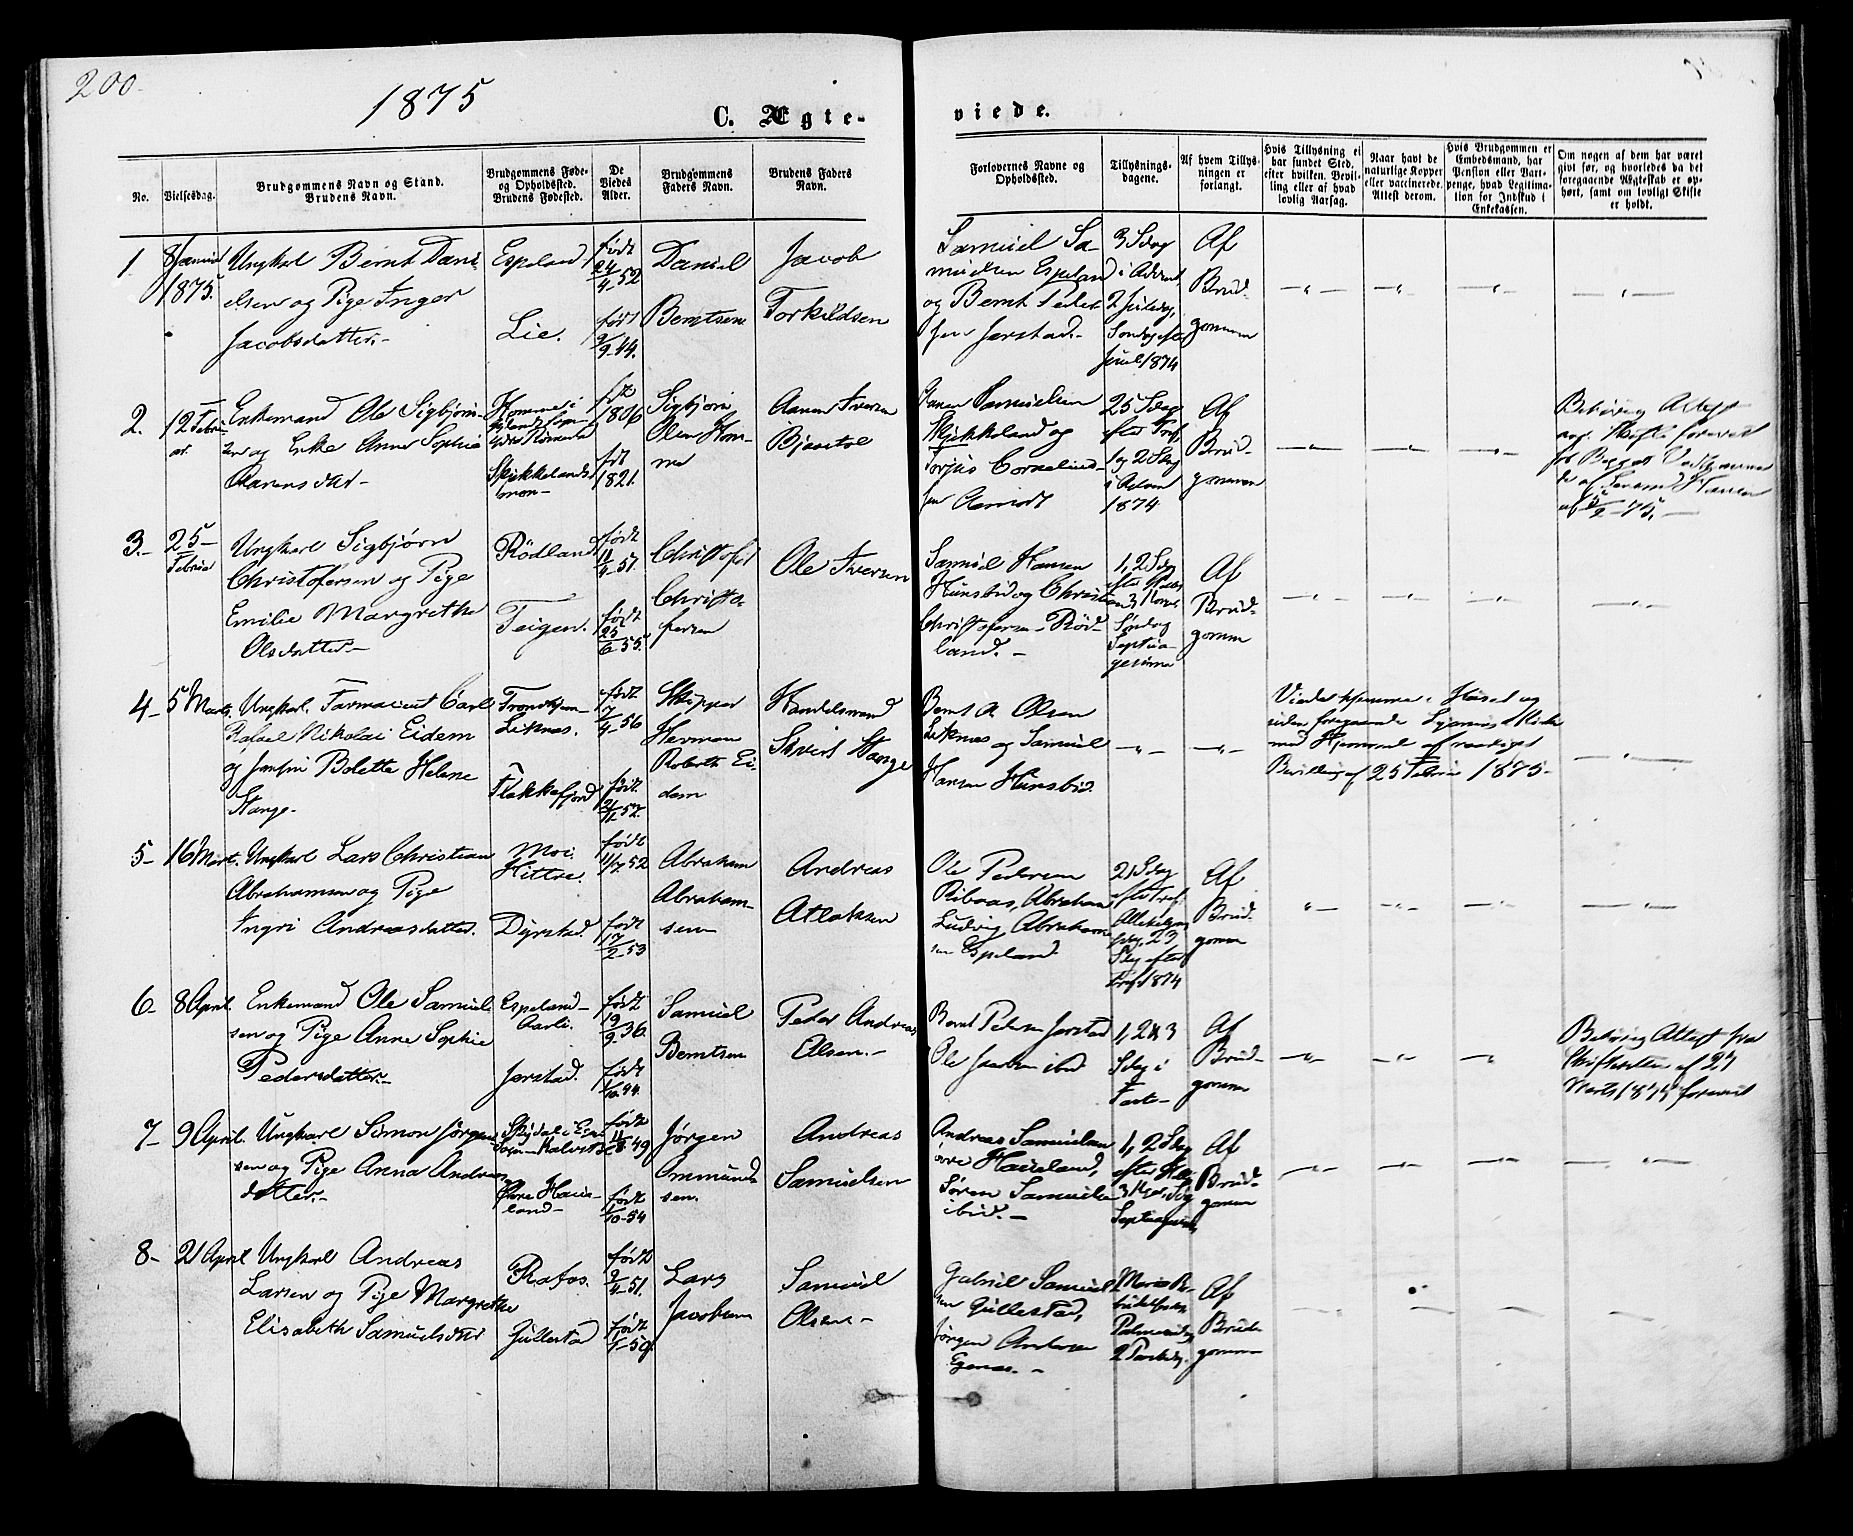 200.
1875
C. Ægte-
viede.
No.
Vielsesdag.
Brudgommens Navn og Stand.
Brudens Navn.
Brudgommens Føde-
og Opholdssted.
Brudens Fødested.
De
Viedes
Alder.
Brudgommens
Faders Navn.
Brudens Faders
Navn.
Forlovernes Navne og
Opholdssted.
Tillysnings-
dagene.
Af hvem Tillys-
ningen er
forlangt.
Hvis Tillysning ei
har fundet Sted,
efter hvilken Bevil-
ling eller af hvad
lovlig Aarsag.
Naar havt de
naturlige Kopper
eller vaccinerede.
Attest derom.
Hvis Brudgommen er
Embedsmand, har
Pension eller Vart-
penge, hvad Legitima-
tion for Indskud i
Enkekassen.
Om nogen af dem har været
gift før, og hvorledes da det
foregaaende Ægteskab er op-
hørt, samt om lovligt Skifte
er holdt.
1.
8 Januar
1875.
Ungkarl Bernt Dani
elsen og Pige Inger
Jacobsdatter.-
Espeland
Lie.
født
24/4-52
født
9/9-44.
Daniel
Berntsen
Jacob
Torkildsen
Samuel Sa-
muelsen Espeland
og Bernt Peder
sen Jerstad.-
3 Sdag
i Advent,
2 Juledag,
Søndag efter
Juul 1874
Af
Brud-
gommen
2.
12 Febru
ar.
Enkemand Ole Sigbjørn-
sen og Enke Anne Sophie
Aanensdatr-
Homme i
Skikkelands
moen-
født
1806
født
1821.
Sigbjørn
Olsen Hom-
me
Aanen Iversen
Bjaastøl
Samuelsen
Skikkeland og
Torjus Cornelius-
sen
25 Sdag
efter Tref,
1 og 2 Sdag
i Advent
1874
Af
Brud-
gommen
Behørig Attest
5/2-75.-
3.-
25-
Februar
Ungkarl Sigbjørn
Christofersen og Pige
Emilie Margrethe
Olsdatter.-
Rødland
Teigen.
født
11/4-51.
født
25/6-55.
Christofer
Christo-
fersen
Ole Iversen
Samuel Hansen
Hunsbid og Christian
Christofersen Rød-
land.-
1, 2 Sdag
efter
Søndag
Septua-
gesima
Af
Brud-
gomm
4-
5 Marts.
Ungkarl. Farmaceut Carl
Rafael Nikolai Eidem
og Jomfru Bolette Helene
Stange-
Trondhjem-
Liknes.
Flekkefjord
født
7/4-56
født
21/11-52.
Skipper
Herman
Roberth Ei-
dem
Handelsmand
Sivert Stange
Bernt A Olsen
Liknes og Samuel
Hansen Hunsbid.
Viede hjemme i Huset og
uden foregaaende Lysning
med Hjemmel af
Bevilling af 25 Februar 1875-
5-
16 Mart.
Ungkarl Lars Christian
Abrahamsen og Pige
Ingri Andreasdatter.
Moi
Hitterø.
Dyrstad.
født
11/7 52
født
17/2-53
Abraham
Abraham-
sen
Andreas
Atlaksen
Ole Pedersen
Ribaas, Abraham
Ludvig Abraham
sen Espeland.
21 Sdag
efter Tref.
Allehelgens
dag, 23
Sdag efter
Tref 1874
Af
Brud-
gomm
6-
8 April.
Enkemand Ole Samuel-
sen og Pige Anne Sophie
Pedersdatter.-
Espeland-
Aarli.
Jerstad.
født
19/9-36.
født
1/10-44.
Samuel
Berntsen
Peder Andreas
Olsen.-
Bernt Pedersen Jerstad
Ole ibid
1, 2 & 3
Sdag i
Faste-
Af
Brud-
gomm
Behørig Attest fra
Skifteretten af 27
Marts 1875 forevist
7-
9 April.
Ungkarl Simon Jørgen-
sen og Pige Anna Andreas
datter.-
Øvre Haue-
land-
født
11/8-49
født
1/10-54
Jørgen
Ommunds
sen.
Andreas
Samuelsen
Andreas Samuelsen
øvre Haueland,
Søren Samuelsen
ibid.-
1, 2 Sdag
efter
Septuagesima
Af
Brud-
gomm
8-
21 April
Ungkarl Andreas
Larsen og Pige Margrethe
Elisabeth Samuelsdatr
Rafos.
Gullestad
født
2/4-51.
født
1/1-50.
Lars
Jacobsen
Samuel
Olsen-
Gabriel Samuel
sen Gullestad,
Jørgen Andersen
Egenes.-
Maria Be-
budelsesdag
Palmesøndag,
2 Paaskedag.
Af
Brud-
gomm